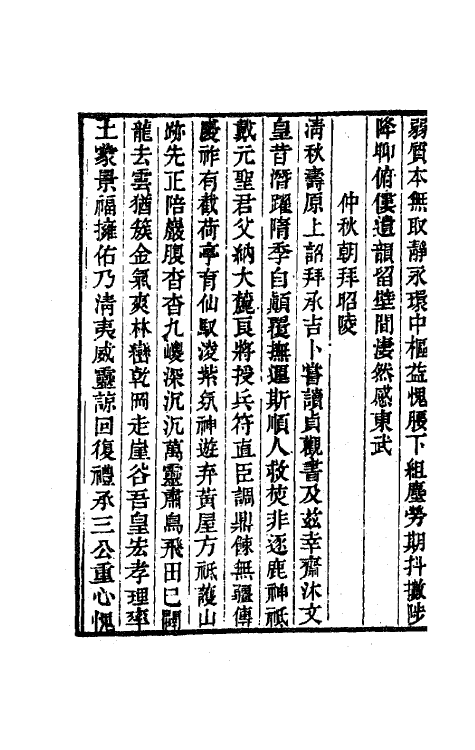 弱質本無取靜永環中樞益愧腰下組塵勞期抖擻陟
降聊俯僂遺韻留壁間淒然感東武
仲秋朝拜昭陵
淸秋壽原上詔拜承吉卜嘗讀貞觀書及茲幸齋沐文
皇昔潛躍隋季自顛覆撫運斯順人救焚非逐鹿神祇
戴元聖君父納大麓良將授兵符直臣調鼎餗無疆傳
慶祚有截荷亭育仙馭淩紫氛神遊弃黃屋方祗護山
跡先正陪巖腹杳杳九嵕深沉沉萬靈肅鳥飛田已闢
龍去雲猶簇金氣爽林巒乾岡走崖谷吾皇宏孝理率
土蒙景福擁佑乃淸夷威靈諒回復禮承三公重心愧